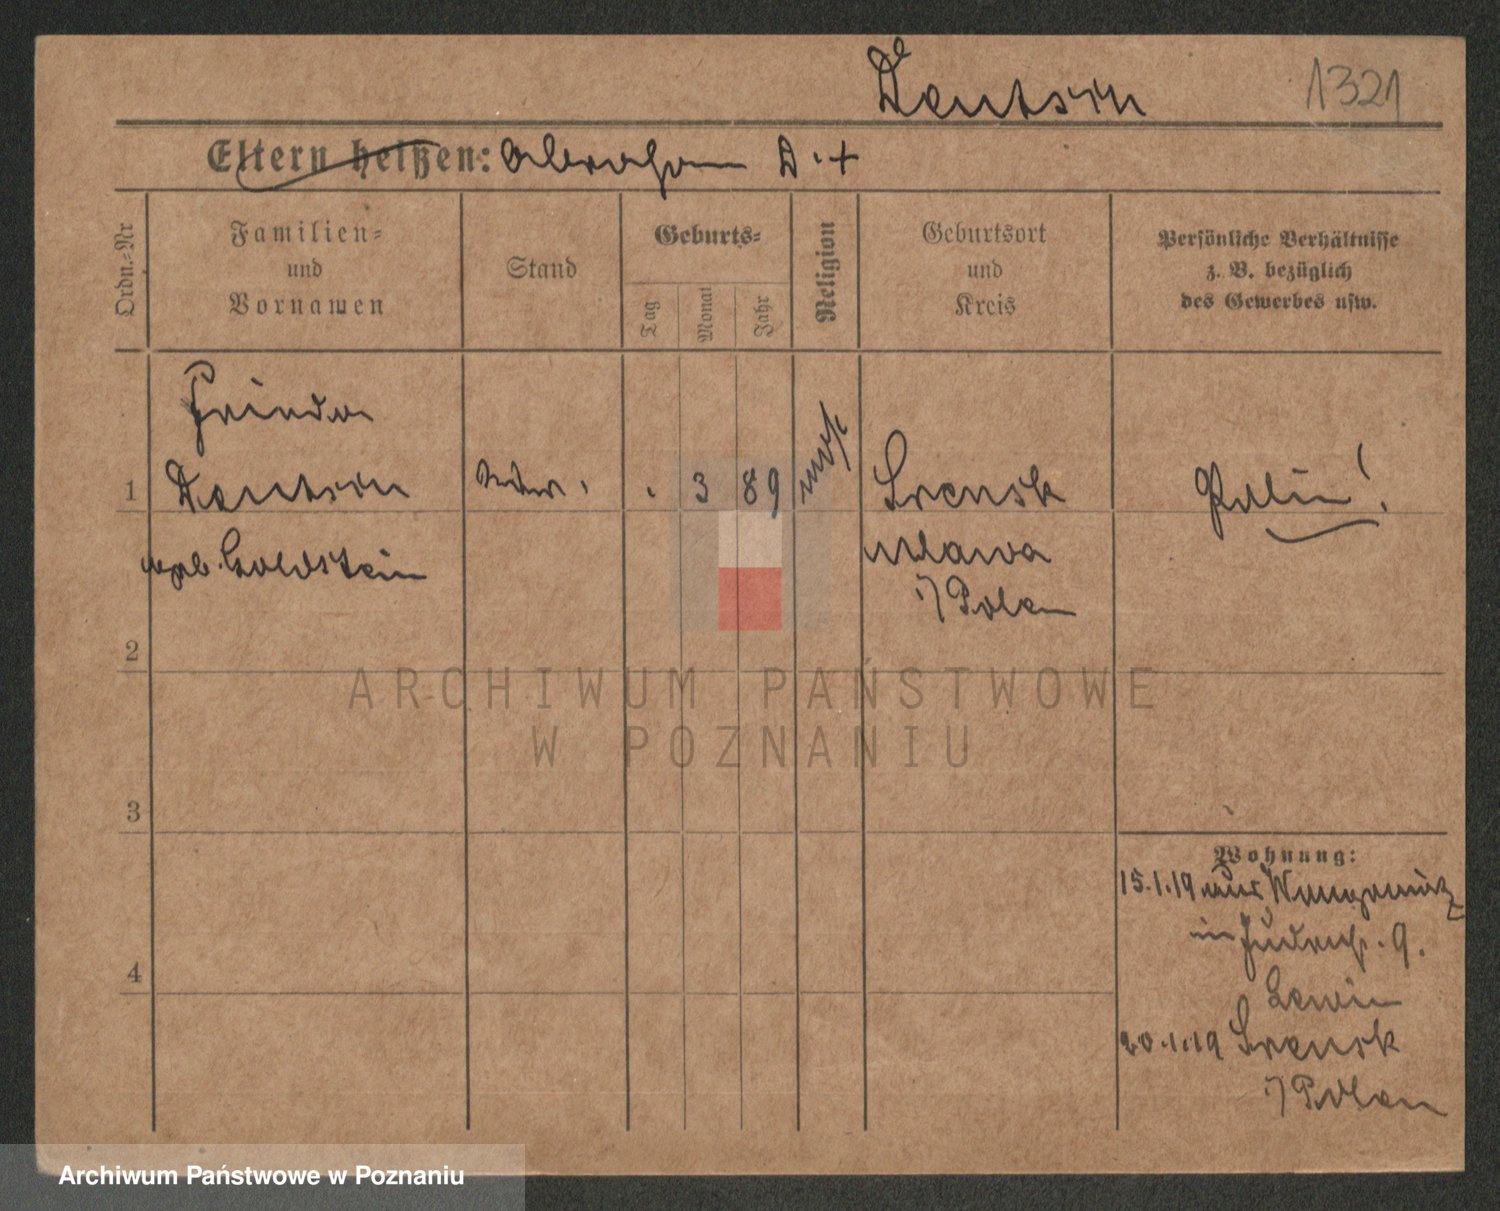 Deutsch
1321
Eltern heißen: Abraham D. +
Ordn.-Nr
Familien-
und
Vornamen
Stand
Geburts-
Tag
Monat
Jahr
Religion
Geburtsort
und
Kreis
Persönliche Verhältnisse
z. B. bezüglich
des Gewerbes usw.
Frieda
1 Deutsch Witw. . 3 89 mos. Srensk Polin!
geb. Goldstein Mlawa
i/ Polen
2
3
4
ARCHIWUM PAŃSTWOWE
W POZNANIU
Wohnung:
15.1.19 aus
in Judenstr. 9.
Lewin
20.1.19 Srensk
i/ Polen
Archiwum Państwowe w Poznaniu